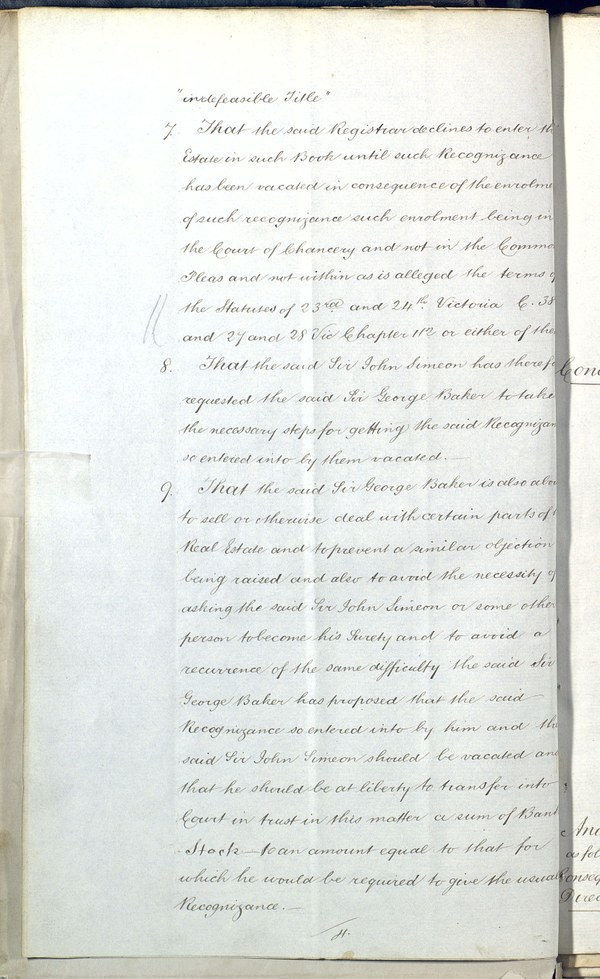 "indefeasible Title"
7. That the said Registrar declines to enter th
Estate in such Book until such Recognizance
has been vacated in consequence of the enrolme
of such recognizance such enrolment being in
the Court of Chancery and not in the Commo
Pleas and not within as is alleged the terms o
the Statutes of 23rd and 24th Victoria C. 38
and 27 and 28 Vic Chapter 112 or either of the
8. That the said Sir John Simeon has theref
requested the said Sir George Baker to take
the necessary steps for getting the said Recognizan
so entered into by them vacated.—
9. That the said Sir George Baker is also abou
to sell or otherwise deal with certain parts of
Real Estate and to prevent a similar objection
being raised and also to avoid the necessity of
asking the said Sir John Simeon or some othe
person to become his Surety and to avoid a
recurrence of the same difficulty the said Sir
George Baker has proposed that the said
Recognizance so entered into by him and th
said Sir John Simeon should be vacated an
that he should be at liberty to transfer into
Court in trust in this matter a sum of Bank
Stock — to an amount equal to that for
which he would be required to give the usual
Recognizance.—
4.
Conc
And
as fol
Conseq
Direc